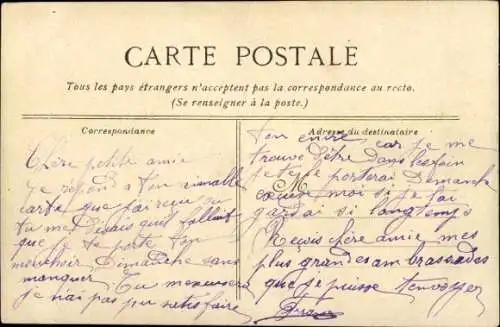 CARTE POSTALE
Tous les pays étrangers n'acceptent pas la correspondance au recto.
(Se renseigner à la poste.)
Correspondance
Adresse du destinataire
M
Chère petite amie
Je répond a ton aimable
carte que j'ai reçu ou
tu me disais qu'il fallait
que je te porte ton
Dimanche sans
manquer
Tu
je n'ai pas pu satisfaire
ton envie, car je me
trouve d'être dans
je te porterai Dimanche
moi si je l'ai
gardai si longtemps
Reçois chère amie mes
plus grandes ambrassades
que je puisse t'envoyer